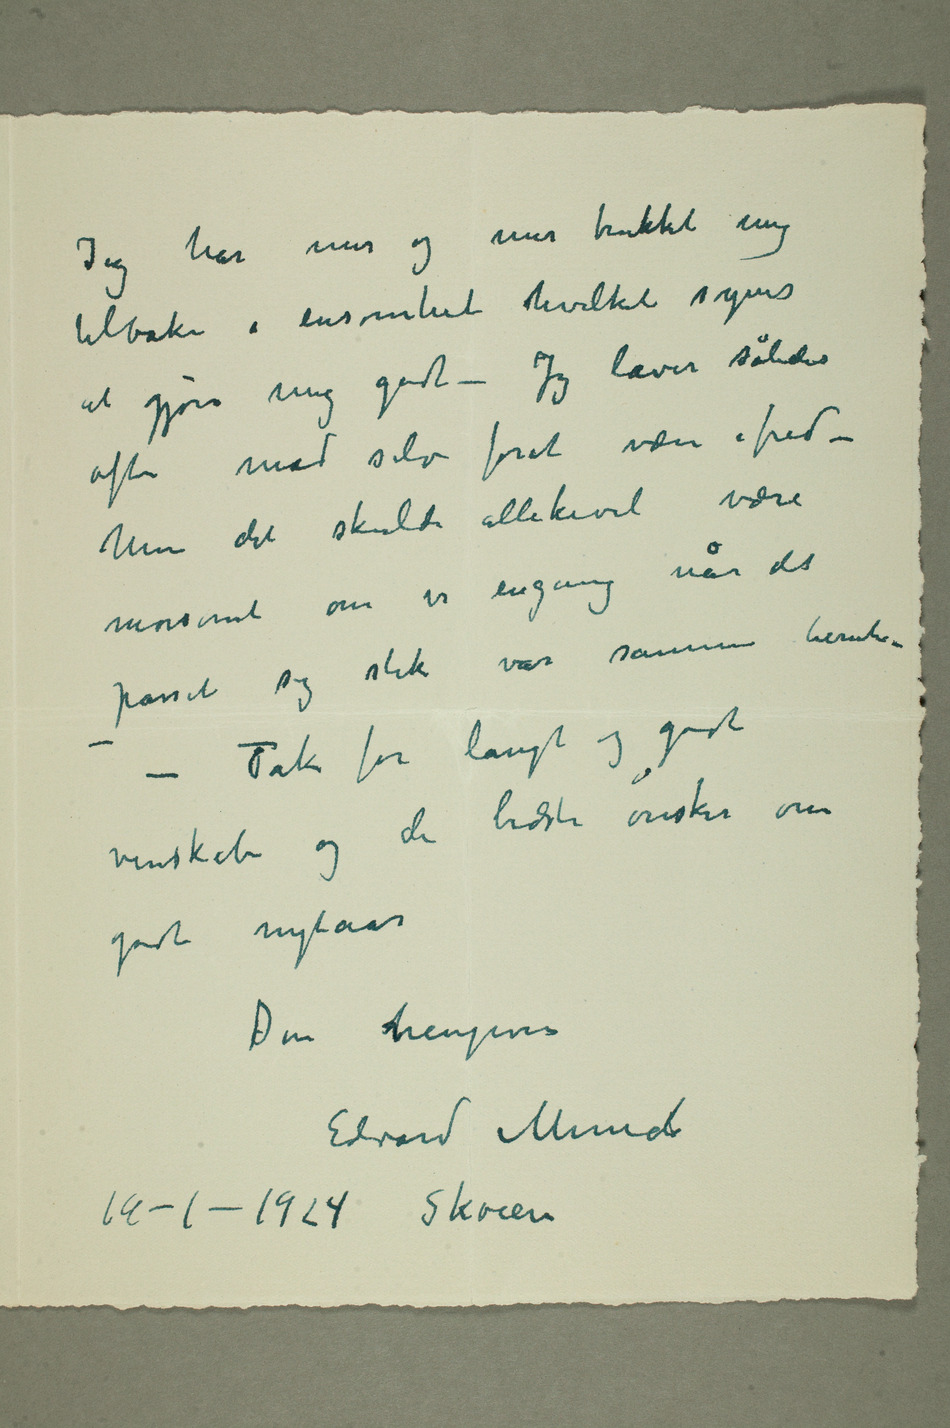 Jeg har mer og mer trukket mig
tilbake i ensomhet hvilket synes
at gjøre mig godt – Jeg laver således
ofte mad selv forat være i fred –
Men det skulde allikevel være
morsomt om vi engang når det
passet sig slik var sammen herute –
– – Tak for langt og godt
venskab og de bedste ønsker om
godt nytaar
Din hengivne
Edvard Munch
19–1–1924 Skøien